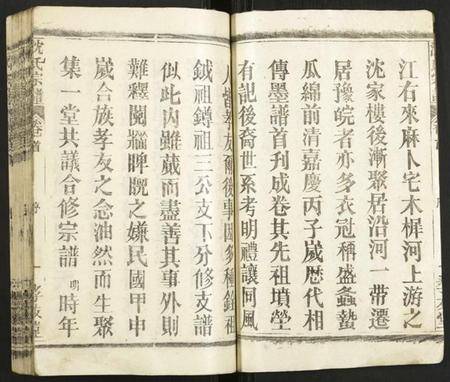 江右來麻卜宅木樨河上游之
沈家樓後漸聚居沿河一帶遷
居豫皖者亦多衣冠稱盛螽蟄
瓜綿前清嘉慶丙子歲歷代相
傳墨譜首刊成卷其先祖墳塋
有記後裔世系考明禮讓同風
人皆孝友爾後事因多種鐘祖
鉞祖鐏祖三公支下分修支譜
似此内雖蕆而盡善其事外則
難釋鬩牆睥睨之嫌民國甲申
歲合族孝友之念油然而生聚
集一堂共議合修宗譜 明 時年
沈氏宗譜 卷首 序 一 孝友堂